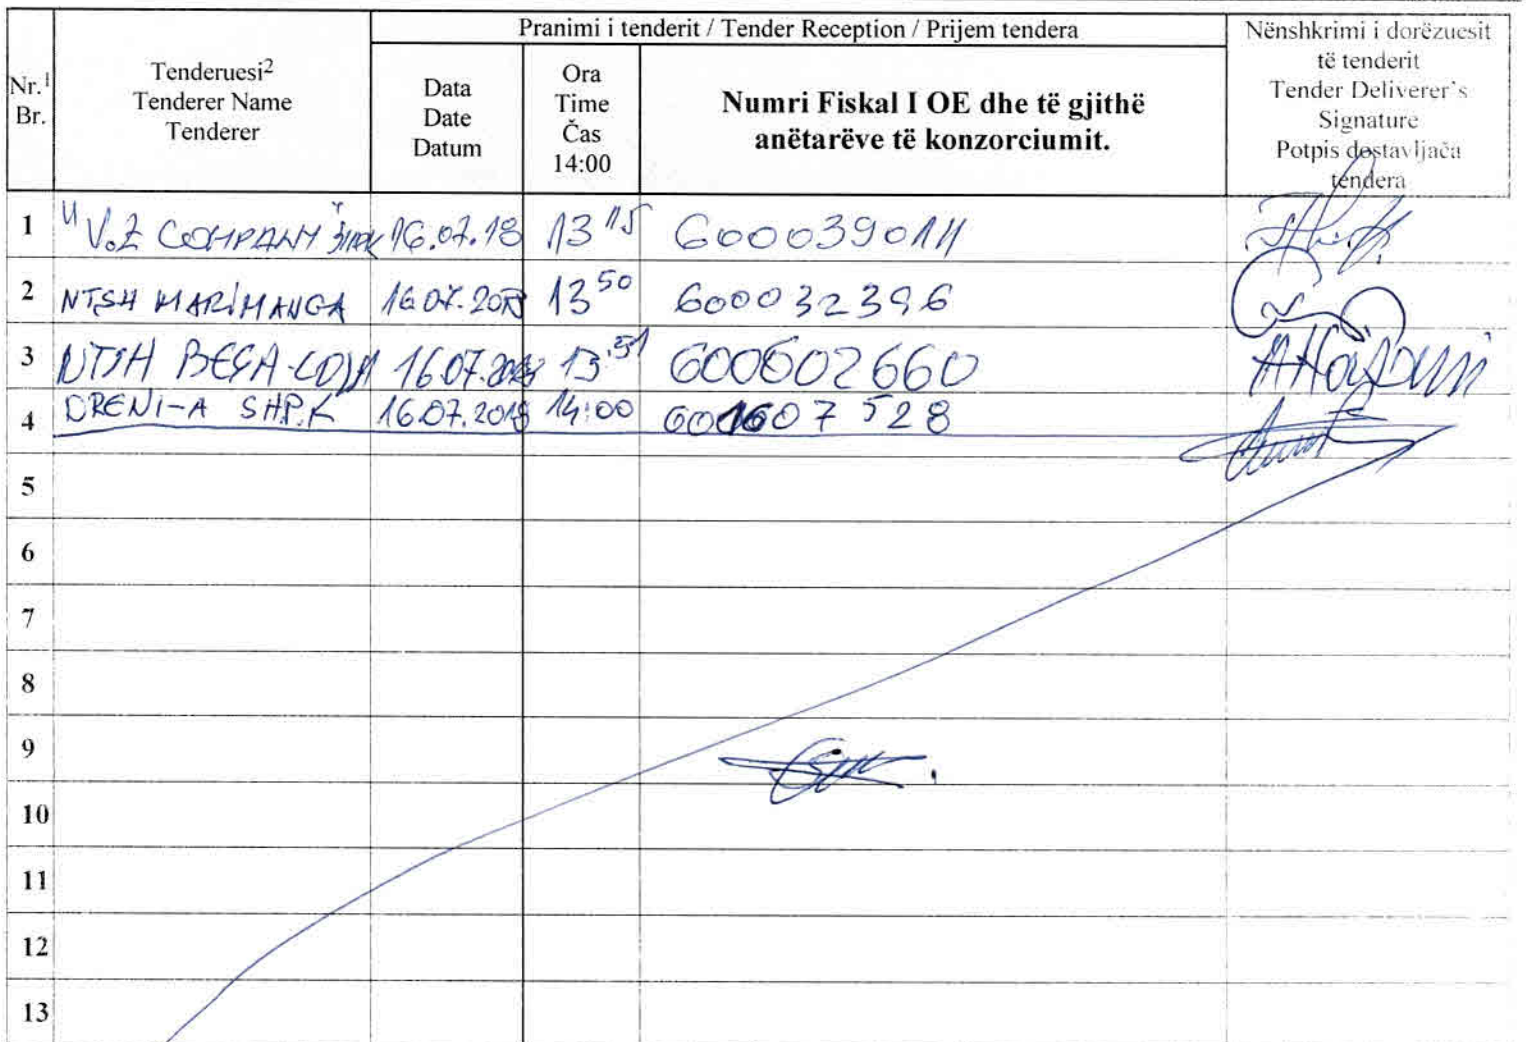 Pranimi i tenderit / Tender Reception / Prijem tendera
Nr.1
Br.
Tenderuesi2
Tenderer Name
Tenderer
Data
Date
Datum
Ora
Time
Čas
14:00
Numri Fiskal I OE dhe të gjithë
anëtarëve të konzorciumit.
Nënshkrimi i dorëzuesit
të tenderit
Tender Deliverer`s
Signature
Potpis dostavljača
tendera
1 "V.Z COMPANY" 16.07.18 13 15 600039011
2 NTSH MARIMANGA 16.07.2018 13 50 600032396
3 NTSH BESA-COM 16.07.2018 13:51 600602660
4 DRENI-A SH.P.K 16.07.2018 14:00 601607528
5
6
7
8
9
10
11
12
13